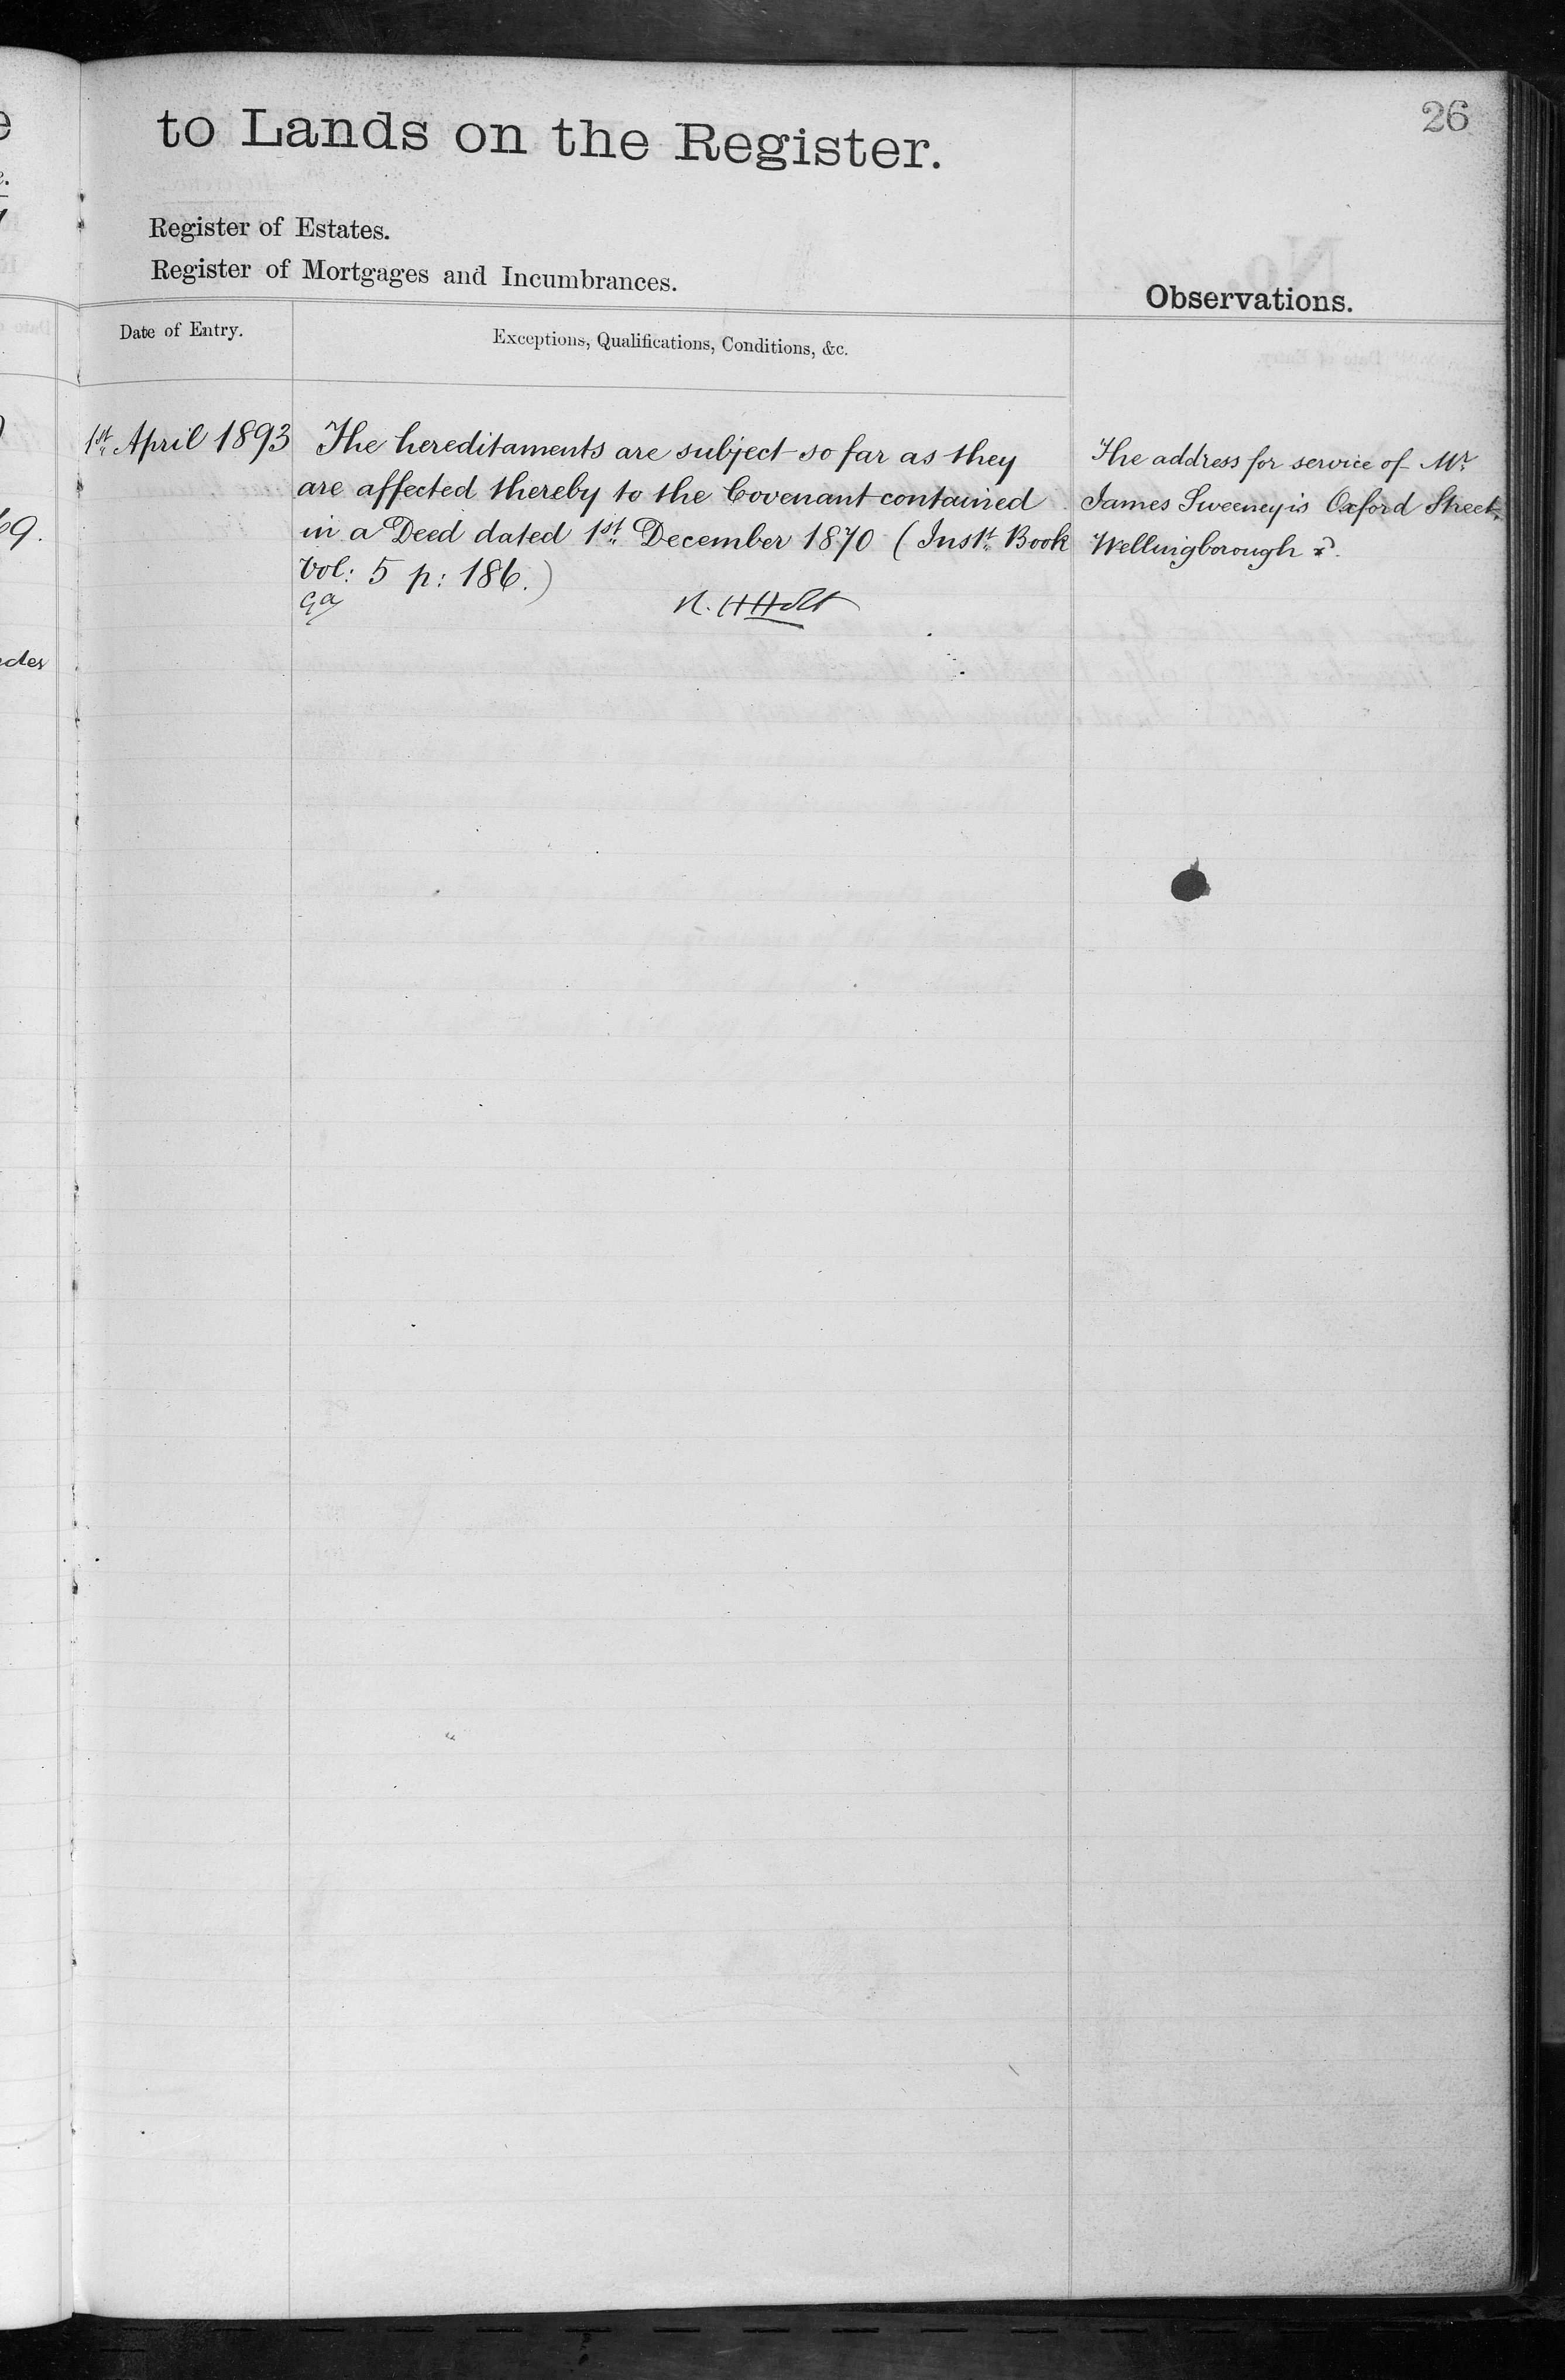 26
to Lands on the Register.
Register of Estates.
Register of Mortgages and Incumbrances.
Observations.
Date of Entry.
Exceptions, Qualifications, Conditions, &c.
1st April 1893
The hereditaments are subject so far as they
are affected thereby to the Covenant contained
in a Deed dated 1st December 1870 (Inst. Book
Vol: 5 p: 186.)
The address for service of Mr
James Sweeney is Oxford Street,
Wellingborough
69.